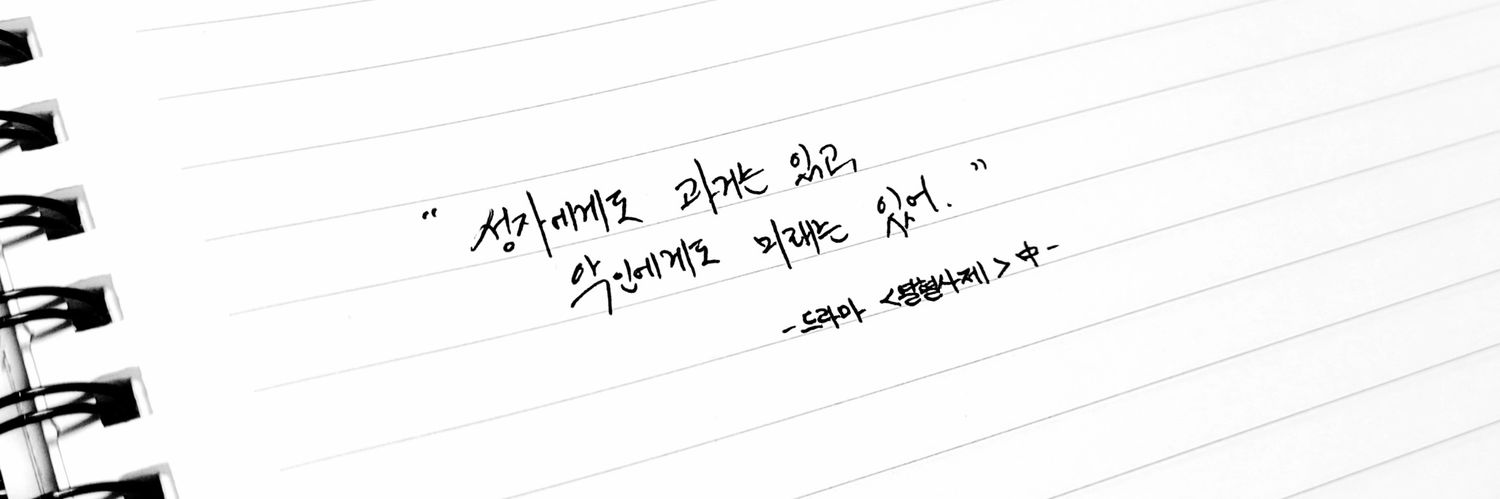 " 성자에게도 과거는 있고,
악인에게도 미래는 있어. "
- 드라마 <열혈사제> 中 -